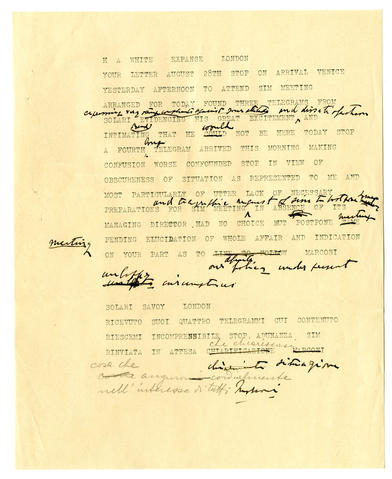 H A WHITE EXPANSE LONDON
YOUR LETTER AUGUST 28TH STOP ON ARRIVAL VENICE
YESTERDAY AFTERNOON TO ATTEND SIM MEETING
ARRANGED FOR TODAY FOUND THREE TELEGRAMS FROM
and dissatisfaction
SOLARI EVIDENCING HIS GREAT EXCITEMENT
and would
INTIMATING THAT HE COULD NOT BE HERE TODAY STOP
A FOURTH TELEGRAM ARRIVED THIS MORNING MAKING
CONFUSION WORSE CONFOUNDED STOP IN VIEW OF
OBSCURENESS OF SITUATION AS REPRESENTED TO ME AND
MOST PARTICULARLY OF UTTER LACK OF NECESSARY
and telegraphic request of some to postpone
PREPARATIONS FOR SIM MEETING ABSENCE OF ITS
meeting
MANAGING DIRECTOR HAD NO CHOICE BUT POSTPONE
meeting
PENDING ELUCIDATION OF WHOLE AFFAIR AND INDICATION
ON YOUR PART AS TO LINE TO FOLLOW MARCONI
our policy under present
circumstances
SOLARI SAVOY LONDON
RICEVUTO SUOI QUATTRO TELEGRAMMI CUI CONTENUTO
RIESCEMI INCOMPRENSIBILE STOP ADUNANZA SIM
che chiarescasi
RINVIATA IN ATTESA CHIARIFICAZIONE MARCONI
situazione
cosa che auguro cordialmente
nell'interesse di tutti